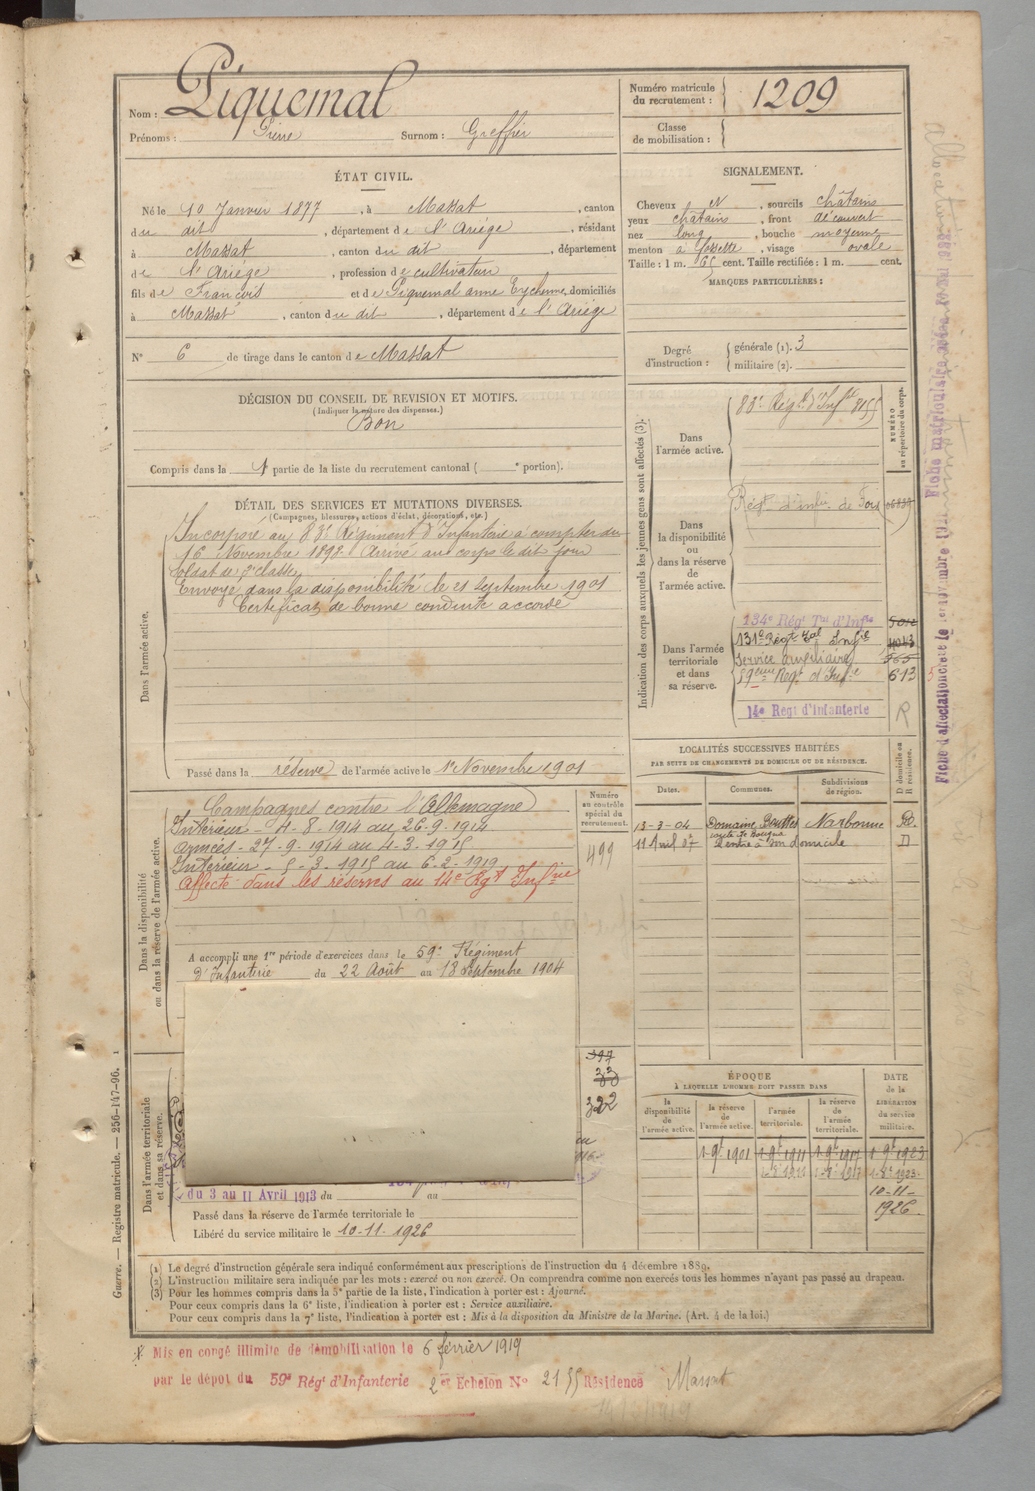 Nom : Piquemal
Prénoms : Pierre Surnom : Greffier
Numéro matricule du recrutement : 1209
Classe de mobilisation :
ÉTAT CIVIL.
Né le 10 Janvier 1877, à Massat, canton
du dit, département de l'Ariége, résidant
à Massat, canton du dit, département
de l'Ariége, profession de cultivateur
fils de François et de Piquemal anne Eychenne, domiciliés
à Massat, canton du dit, département de l'Ariége
N° 6 de tirage dans le canton de Massat
SIGNALEMENT.
Cheveux N, sourcils châtains
yeux châtains, front découvert
nez long, bouche moyenne
menton à fossette, visage ovale
Taille : 1 m. 65 cent. Taille rectifiée : 1 m. cent.
MARQUES PARTICULIÈRES :
Degré d'instruction : générale (1). 3
militaire (2).
DÉCISION DU CONSEIL DE REVISION ET MOTIFS.
(Indiquer la nature des dispenses.)
Bon
Compris dans la 1 partie de la liste du recrutement cantonal ( e portion).
DÉTAIL DES SERVICES ET MUTATIONS DIVERSES.
(Campagnes, blessures, actions d'éclat, décorations, etc.)
Dans l'armée active.
Incorporé au 83e Régiment d'Infanterie à compter du
16 Novembre 1898. Arrivé au corps le dit jour
soldat de 2e classe
Envoyé dans la disponibilité le 21 Septembre 1901
Certificat de bonne conduite accordé
Passé dans la réserve de l'armée active le 1er Novembre 1901
Indication des corps auxquels les jeunes gens sont affectés (3).
NUMÉRO au répertoire du corps.
Dans l'armée active.
83e Régt d'Infie 8155
Dans la disponibilité ou dans la réserve de l'armée active.
Régt d'infie de Foix
Dans l'armée territoriale et dans sa réserve.
134e Régt Tal d'Infie
131e Régt Tal Infie
Service auxiliaire 565
59eme Régt d'Infie 613
14e Régt d'Infanterie R
LOCALITÉS SUCCESSIVES HABITÉES
PAR SUITE DE CHANGEMENTS DE DOMICILE OU DE RÉSIDENCE.
Dates. Communes. Subdivisions de région. D domicile ou R résidence.
13-3-04 Domaine Narbonne R.
11 Avril 07 Rentré à son domicile D
Dans la disponibilité ou dans la réserve de l'armée active.
Campagnes contre l'Allemagne
Intérieur - 4-8-1914 au 26-9-1914
armées - 27-9-1914 au 4-3-1915
Intérieur - 5-3-1915 au 6-2-1919
Affecté dans les réserves au 14e Rgt Infie
Numéro au contrôle spécial du recrutement.
499
A accompli une 1re période d'exercices dans le 59e Régiment
d'Infanterie du 22 Août au 18 Septembre 1904
Dans l'armée territoriale et dans sa réserve.
397
33
322
du 3 au 11 Avril 1913 du au
Passé dans la réserve de l'armée territoriale le
Libéré du service militaire le 10-11-1926
ÉPOQUE
À LAQUELLE L'HOMME DOIT PASSER DANS
la disponibilité de l'armée active. la réserve de l'armée active. l'armée territoriale. la réserve de l'armée territoriale.
DATE de la LIBÉRATION du service militaire.
1-9bre 1901 1-9bre 1911 1-9bre 1917 1-9bre 1923
10-11-1926
(1) Le degré d'instruction générale sera indiqué conformément aux prescriptions de l'instruction du 4 décembre 1889.
(2) L'instruction militaire sera indiquée par les mots : exercé ou non exercé. On comprendra comme non exercés tous les hommes n'ayant pas passé au drapeau.
(3) Pour les hommes compris dans la 5e partie de la liste, l'indication à porter est : Ajourné.
Pour ceux compris dans la 6e liste, l'indication à porter est : Service auxiliaire.
Pour ceux compris dans la 7e liste, l'indication à porter est : Mis à la disposition du Ministre de la Marine. (Art. 4 de la loi.)
Guerre. — Registre matricule. — 256-147-96. 1
Mis en congé illimité de démobilisation le 6 février 1919
par le dépôt du 59e Régt d'Infanterie 2e Echelon N° 2155 Résidence Massat